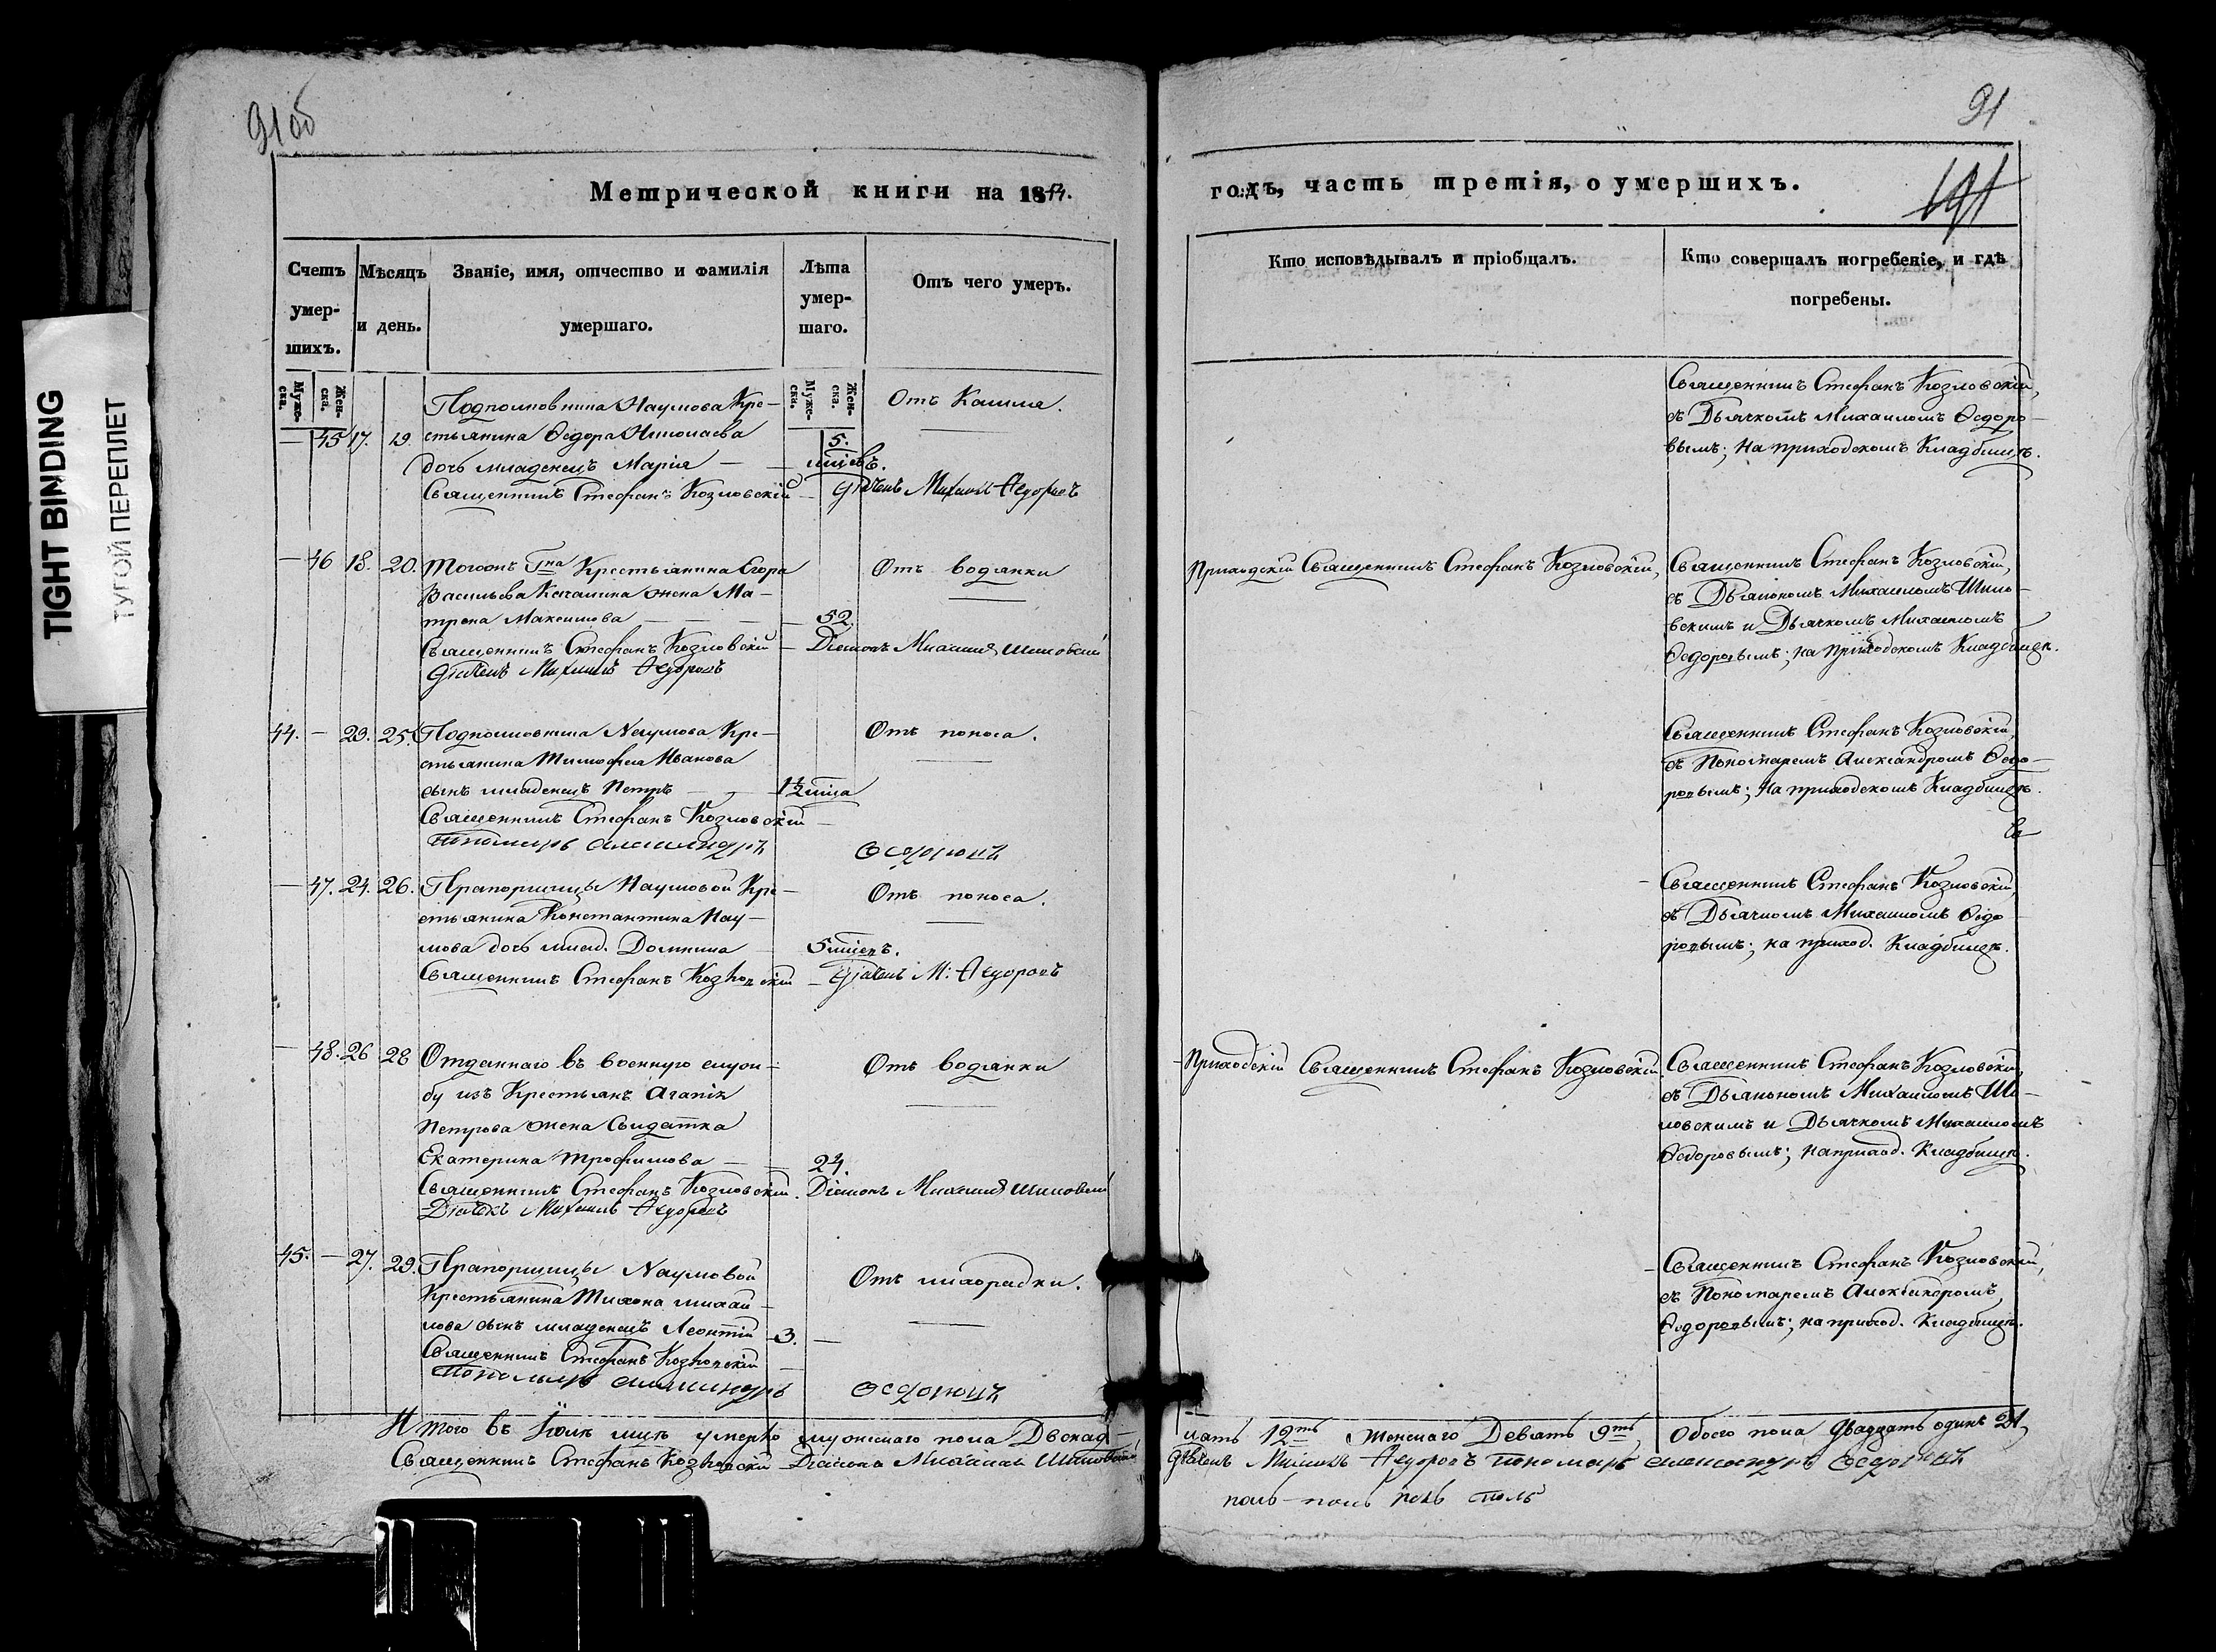 91 об
91
191
TIGHT BINDING
ТУГОЙ ПЕРЕПЛЕТ
Метрической книги на 18
годъ, часть третія, о умершихъ.
Счетъ умер-шихъ.
Мѣсяцъ и день.
Званіе, имя, отчество и фамилія умершаго.
Лѣта умер-шаго.
Отъ чего умеръ.
Кто исповѣдывалъ и пріобщалъ.
Кто совершалъ погребеніе, и гдѣ погребены.
Муже-ска.
Жен-ска.
Муже-ска.
Жен-ска.
Подполковника Наумова Кре-
— 45 17. 19. стьянина Ѳедора Николаева
дочь младенецъ Марія —
5.
мцевъ.
Отъ Кашля.
Священникъ Стефанъ Козловскій — Діячекъ Михаилъ Ѳедоровъ
Священникъ Стефанъ Козловскій,
съ Дьячкомъ Михаиломъ Ѳедоро-
вымъ; на приходскомъ Кладбищѣ.
— 46 18. 20. Тогожъ Гна Крестьянина Егора
Васильева Качалина жена Ма-
трена Максимова — — — 52.
Отъ водянки
Священникъ Стефанъ Козловскій — Діаконъ Михаилъ Шиловскій
Діячекъ Михаилъ Ѳедоровъ
Приходскій Священникъ Стефанъ Козловскій,
Священникъ Стефанъ Козловскій,
съ Дьякономъ Михаиломъ Шило-
вскимъ и Дьячкомъ Михаиломъ
Ѳедоровымъ; на приходскомъ Кладбищѣ.
44. — 23. 25. Подполковника Наумова Кре-
стьянина Тимофея Иванова
сынъ младенецъ Петръ — — 1½ мца
Отъ поноса.
Священникъ Стефанъ Козловскій —
Пономарь Александръ Ѳедоровъ
Священникъ Стефанъ Козловскій,
съ Пономаремъ Александромъ Ѳедо-
ровымъ; на приходскомъ Кладбищѣ.
— 47. 24. 26. Прапорщицы Наумовой Кре-
стьянина Константина Нау-
мова дочь млад. Домника — 5 мцевъ.
Отъ поноса.
Священникъ Стефанъ Козловскій — Діячекъ М: Ѳедоровъ
Священникъ Стефанъ Козловскій,
съ Дьячкомъ Михаиломъ Ѳедо
ровымъ; на приход. Кладбищѣ.
— 48. 26 28 Отданнаго въ военную служ-
бу изъ Крестьянъ Агапія
Петрова жена Солдатка
Екатерина Трофимова — — 24.
Отъ водянки
Священникъ Стефанъ Козловскій. Діаконъ Михаилъ Шиловскій
Діячекъ Михаилъ Ѳедоровъ
Приходскій Священникъ Стефанъ Козловскій.
Священникъ Стефанъ Козловскій,
съ Дьякономъ Михаиломъ Ши-
ловскимъ и Дьячкомъ Михаиломъ
Ѳедоровымъ; на приход. Кладбищѣ.
45. — 27. 29. Прапорщицы Наумовой
Крестьянина Тихона Михай-
лова сынъ младенецъ Леонтій 3. —
Отъ лихорадки.
Священникъ Стефанъ Козловскій —
Пономарь Александръ Ѳедоровъ
Священникъ Стефанъ Козловскій,
съ Пономаремъ Александромъ
Ѳедоровымъ; на приход. Кладбищѣ.
Итого въ Іюлѣ мцѣ умерло мужескаго пола Двенад-
цать 12ть женскаго Девять 9ть Обоего пола Двадцать одинъ 21,
Священникъ Стефанъ Козловскій Діаконъ Михаилъ Шиловскій
Діячекъ Михаилъ Ѳедоровъ Пономарь Александръ Ѳедоровъ